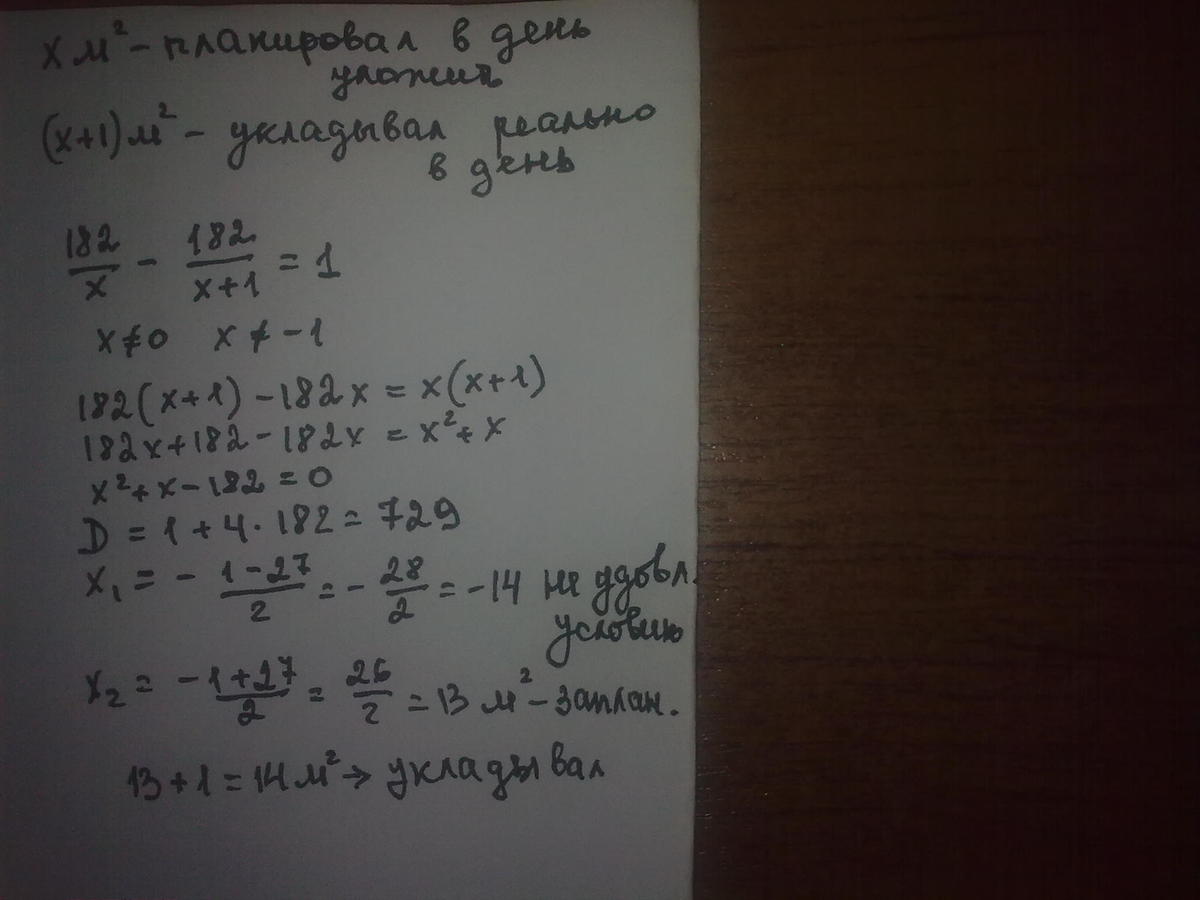 x м² – планировал в день
уложить
(x+1) м² – укладывал реально
в день
182/x − 182/(x+1) = 1
x≠0 x ≠ −1
182(x+1) − 182x = x(x+1)
182x+182−182x = x²+x
x²+x−182=0
D = 1+4·182=729
x₁ = − 1−27/2 = − 28/2 = −14 не удовл.
условию
x₂ = −1+27/2 = 26/2 = 13 м² – заплан.
13+1=14 м² → укладывал